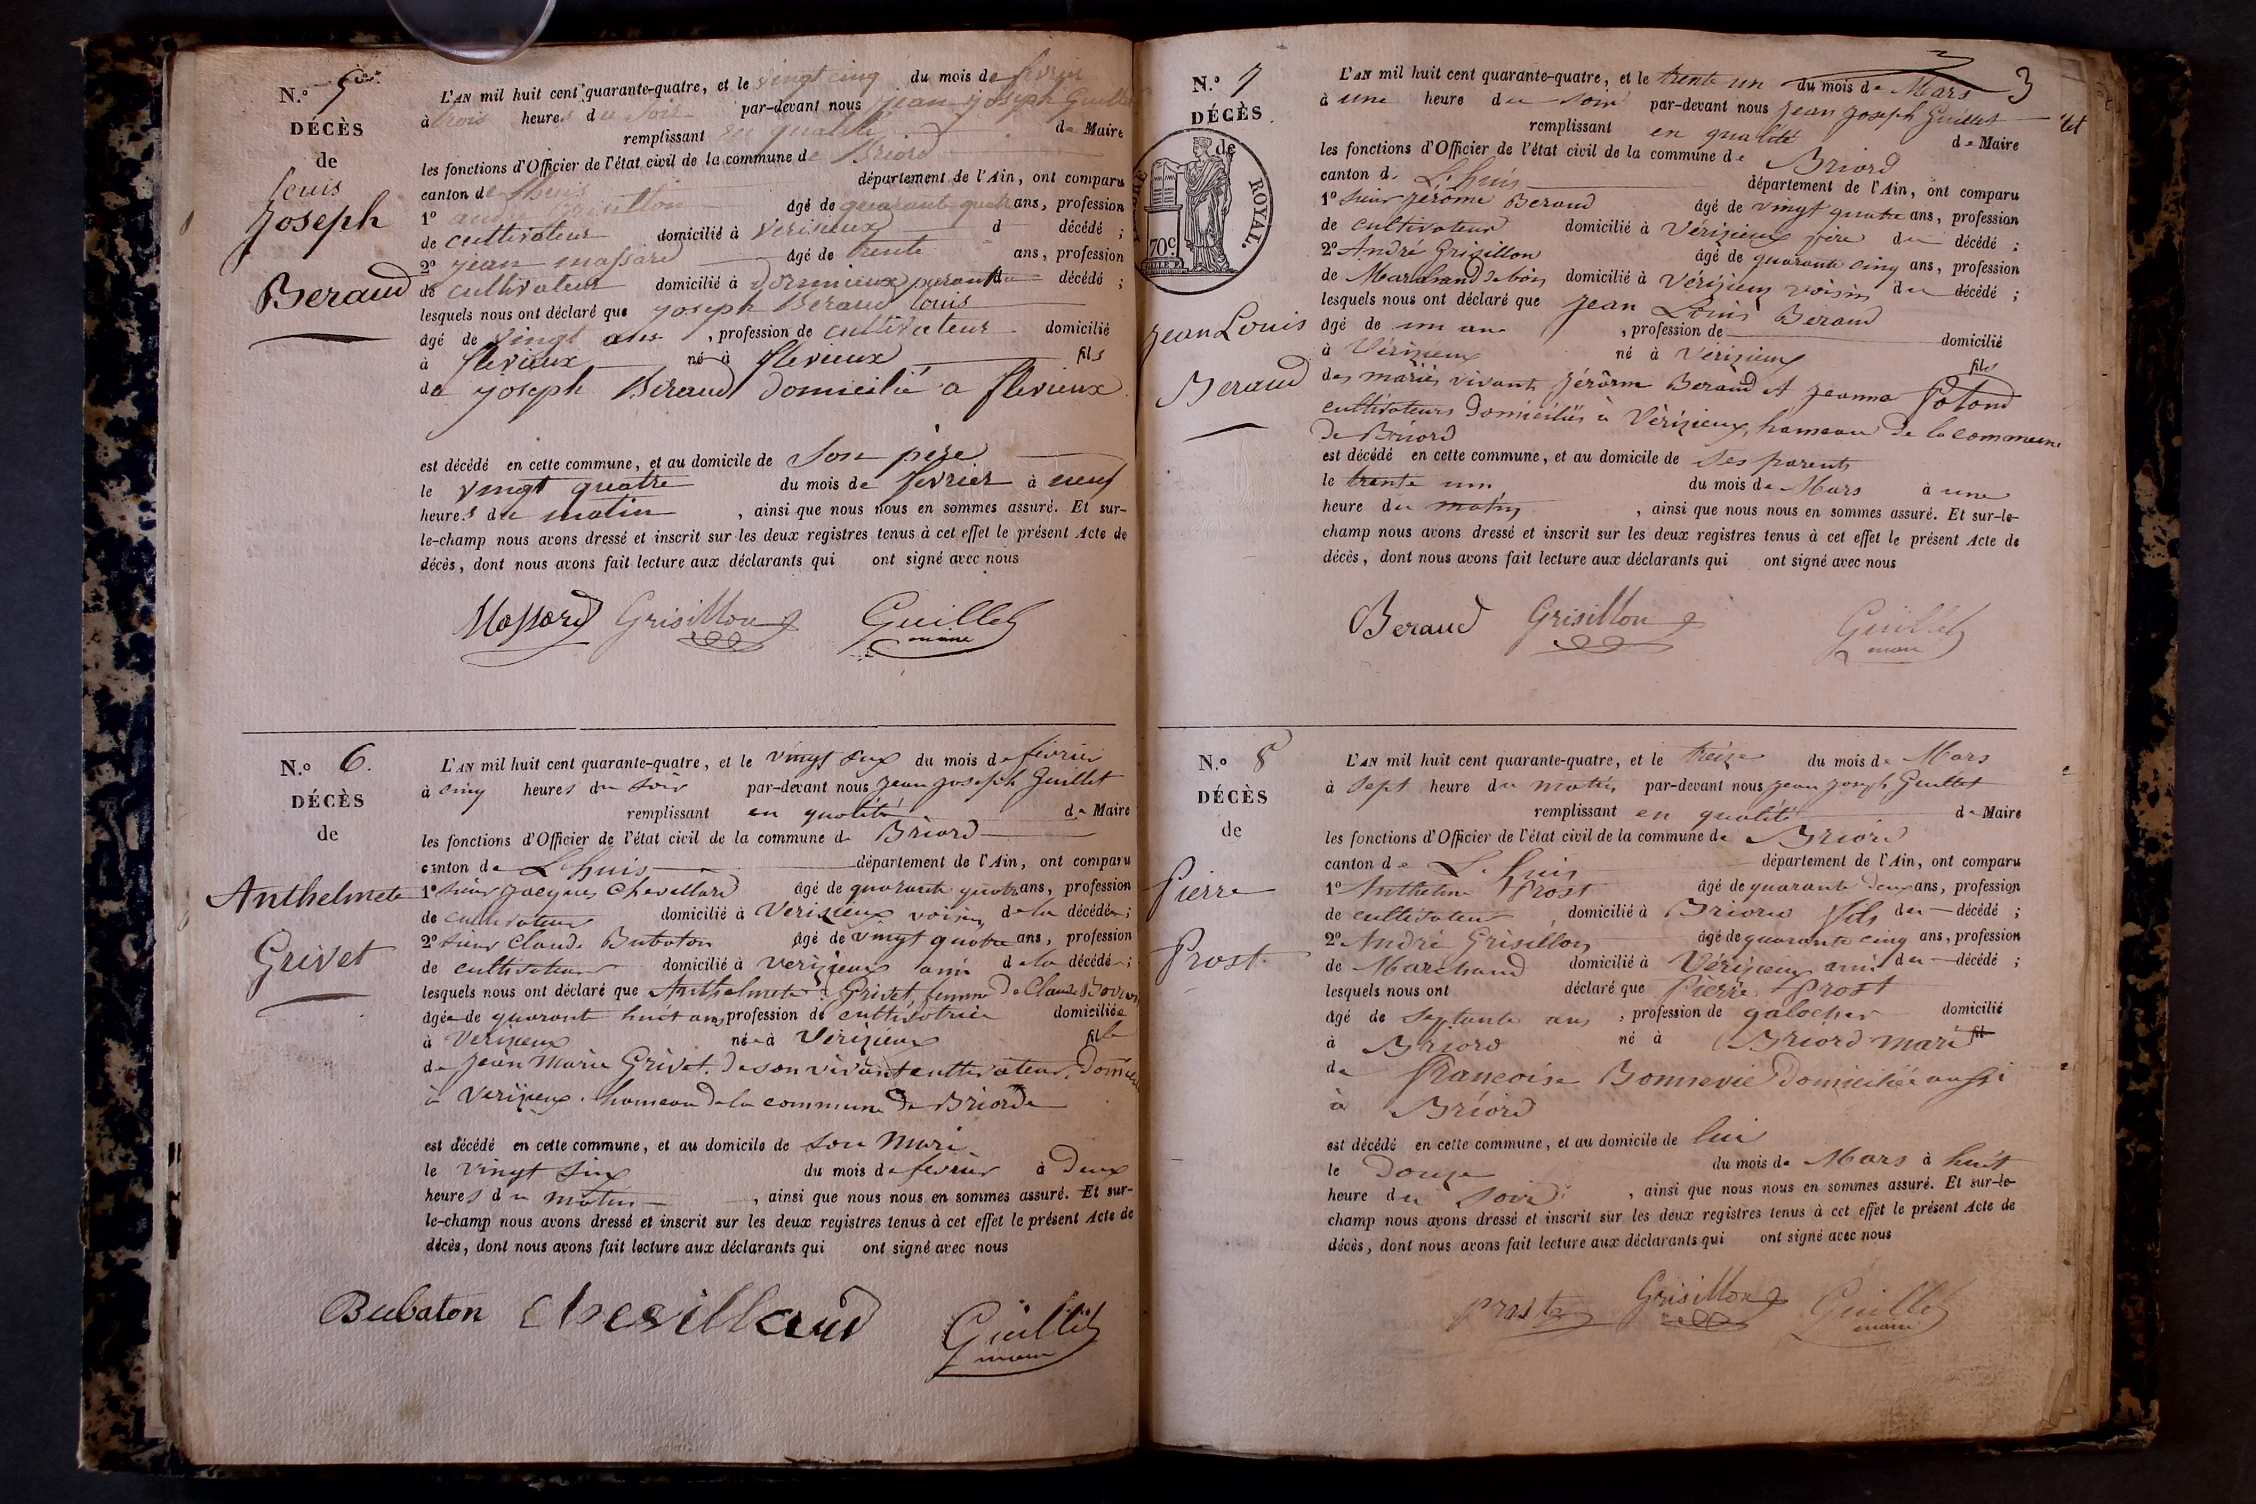 N.º 5
DÉCÈS
de
Louis
Joseph
Beraud
L'AN mil huit cent quarante-quatre, et le vingt cinq du mois de fevrier
à trois heures du soir par-devant nous jean joseph Guillet
remplissant en qualité de Maire
les fonctions d'Officier de l'état civil de la commune de Briord
canton de Lhuis département de l'Ain, ont comparu
1º andré Grisillon âgé de quarante quatre ans, profession
de cultivateur domicilié à Verisieux d décédé ;
2º jean massard âgé de trente ans, profession
de cultivateur domicilié à dornieux parent du décédé ;
lesquels nous ont déclaré que joseph Beraud Louis
âgé de vingt ans , profession de cultivateur domicilié
à flevieux né à flevieux fils
de joseph Beraud domicilié a flevieux
est décédé en cette commune, et au domicile de son père
le vingt quatre du mois de fevrier à neuf
heures du matin , ainsi que nous nous en sommes assuré. Et sur-
le-champ nous avons dressé et inscrit sur les deux registres tenus à cet effet le présent Acte de
décès, dont nous avons fait lecture aux déclarants qui ont signé avec nous
Massard Grisillon Guillet
maire
N.º 6.
DÉCÈS
de
Anthelmete
Grivet
L'AN mil huit cent quarante-quatre, et le vingt six du mois de fevrier
à cinq heures du soir par-devant nous jean joseph Guillet
remplissant en qualité de Maire
les fonctions d'Officier de l'état civil de la commune de Briord
canton de L'huis département de l'Ain, ont comparu
1º sieur jacques Chevillard âgé de quarante quatre ans, profession
de cultivateur domicilié à Verizieux voisin de la décédée ;
2º sieur Claude Bubaton âgé de vingt quatre ans, profession
de cultivateur domicilié à verizieux ami de la décédée ;
lesquels nous ont déclaré que Anthelmete Grivet, femme de Claude
âgée de quarante huit ans profession de cultivatrice domiciliée
à Verizieux née à Verizieux fille
de jean Marie Grivet. de son vivant cultivateur, domicilié
à Verizieux. hameau de la commune de Briord
est décédé en cette commune, et au domicile de son Mari
le vingt six du mois de fevrier à deux
heures du matin , ainsi que nous nous en sommes assuré. Et sur-
le-champ nous avons dressé et inscrit sur les deux registres tenus à cet effet le présent Acte de
décès, dont nous avons fait lecture aux déclarants qui ont signé avec nous
Bubaton chevillard Guillet
maire
3
N.º 7
DÉCÈS
de
ROYAL.
70c.
Jean Louis
Beraud
L'AN mil huit cent quarante-quatre, et le trente un du mois de Mars
à une heure du soir par-devant nous jean joseph Guillet
remplissant en qualité de Maire
les fonctions d'Officier de l'état civil de la commune de Briord
canton de L'huis département de l'Ain, ont comparu
1º sieur jérôme Beraud âgé de vingt quatre ans, profession
de cultivateur domicilié à Vérizieux père du décédé ;
2º André Grisillon âgé de quarante cinq ans, profession
de Marchand de bois domicilié à Vérizieux voisin du décédé ;
lesquels nous ont déclaré que jean Louis Beraud
âgé de un an , profession de domicilié
à Vérizieux né à Verizieux fils
des mariés vivants jérôme Beraud et jeanne
cultivateurs domiciliés à Vérizieux, hameau de la commune
de Briord
est décédé en cette commune, et au domicile de ses parents
le trente un du mois de Mars à une
heure du matin , ainsi que nous nous en sommes assuré. Et sur-le-
champ nous avons dressé et inscrit sur les deux registres tenus à cet effet le présent Acte de
décès, dont nous avons fait lecture aux déclarants qui ont signé avec nous
Beraud Grisillon Guillet
maire
N.º 8
DÉCÈS
de
Pierre
Prost
L'AN mil huit cent quarante-quatre, et le treize du mois de Mars
à sept heure du matin par-devant nous jean joseph Guillet
remplissant en qualité de Maire
les fonctions d'Officier de l'état civil de la commune de Briord
canton de L'huis département de l'Ain, ont comparu
1º Anthelme Prost âgé de quarante deux ans, profession
de cultivateur, domicilié à Briord fils du décédé ;
2º André Grisillon âgé de quarante cinq ans, profession
de Marchand domicilié à Vérizieux ami du décédé ;
lesquels nous ont déclaré que Pierre Prost
âgé de septante ans , profession de galocher domicilié
à Briord né à Briord mari fil
de francoise Bonnevie domiciliée aussi
à Briord
est décédé en cette commune, et au domicile de lui
le douze du mois de Mars à huit
heure du soir , ainsi que nous nous en sommes assuré. Et sur-le-
champ nous avons dressé et inscrit sur les deux registres tenus à cet effet le présent Acte de
décès, dont nous avons fait lecture aux déclarants qui ont signé avec nous
prost Grisillon Guillet
maire